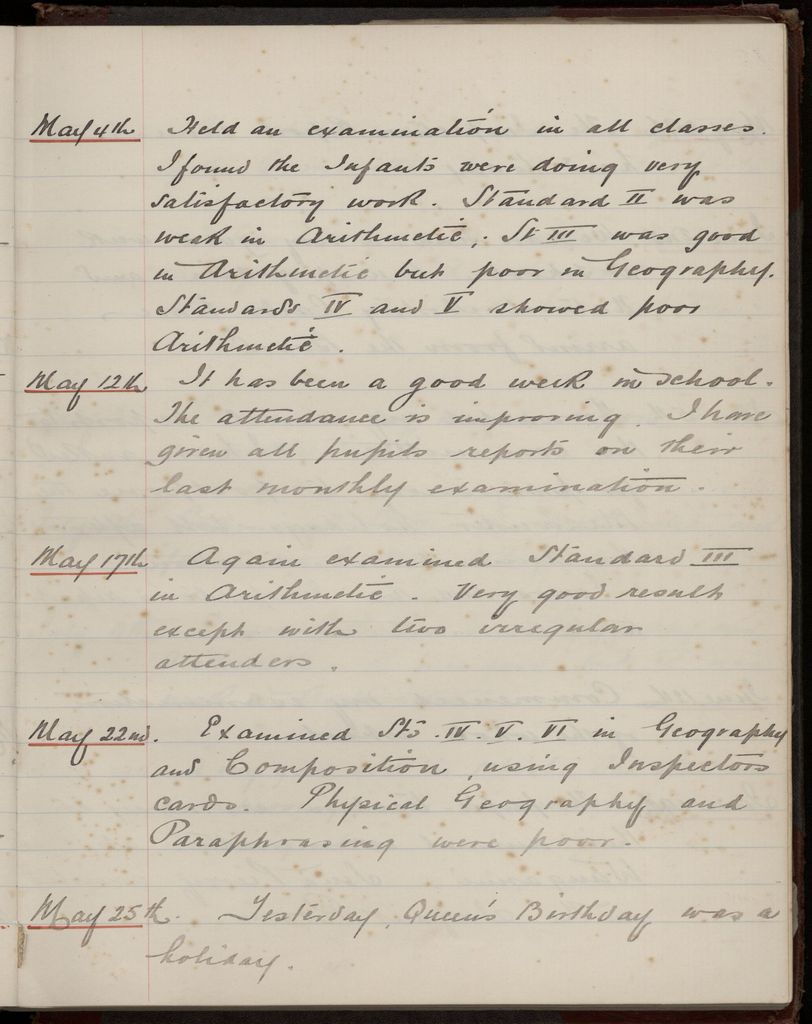 May 4th Held an examination in all classes.
I found the Infants were doing very
satisfactory work. Standard II was
weak in Arithmetic; St III was good
in Arithmetic but poor in Geography.
Standards IV and V showed poor
Arithmetic.
May 12th It has been a good week in school.
The attendance is improving. I have
given all pupils reports on their
last monthly examination.
May 17th Again examined Standard III
in Arithmetic. Very good results
except with two irregular
attenders.
May 22nd. Examined Sts. IV. V. VI in Geography
and Composition, using Inspectors
cards. Physical Geography and
Paraphrasing were poor.
May 25th. Yesterday, Queen's Birthday was a
holiday.